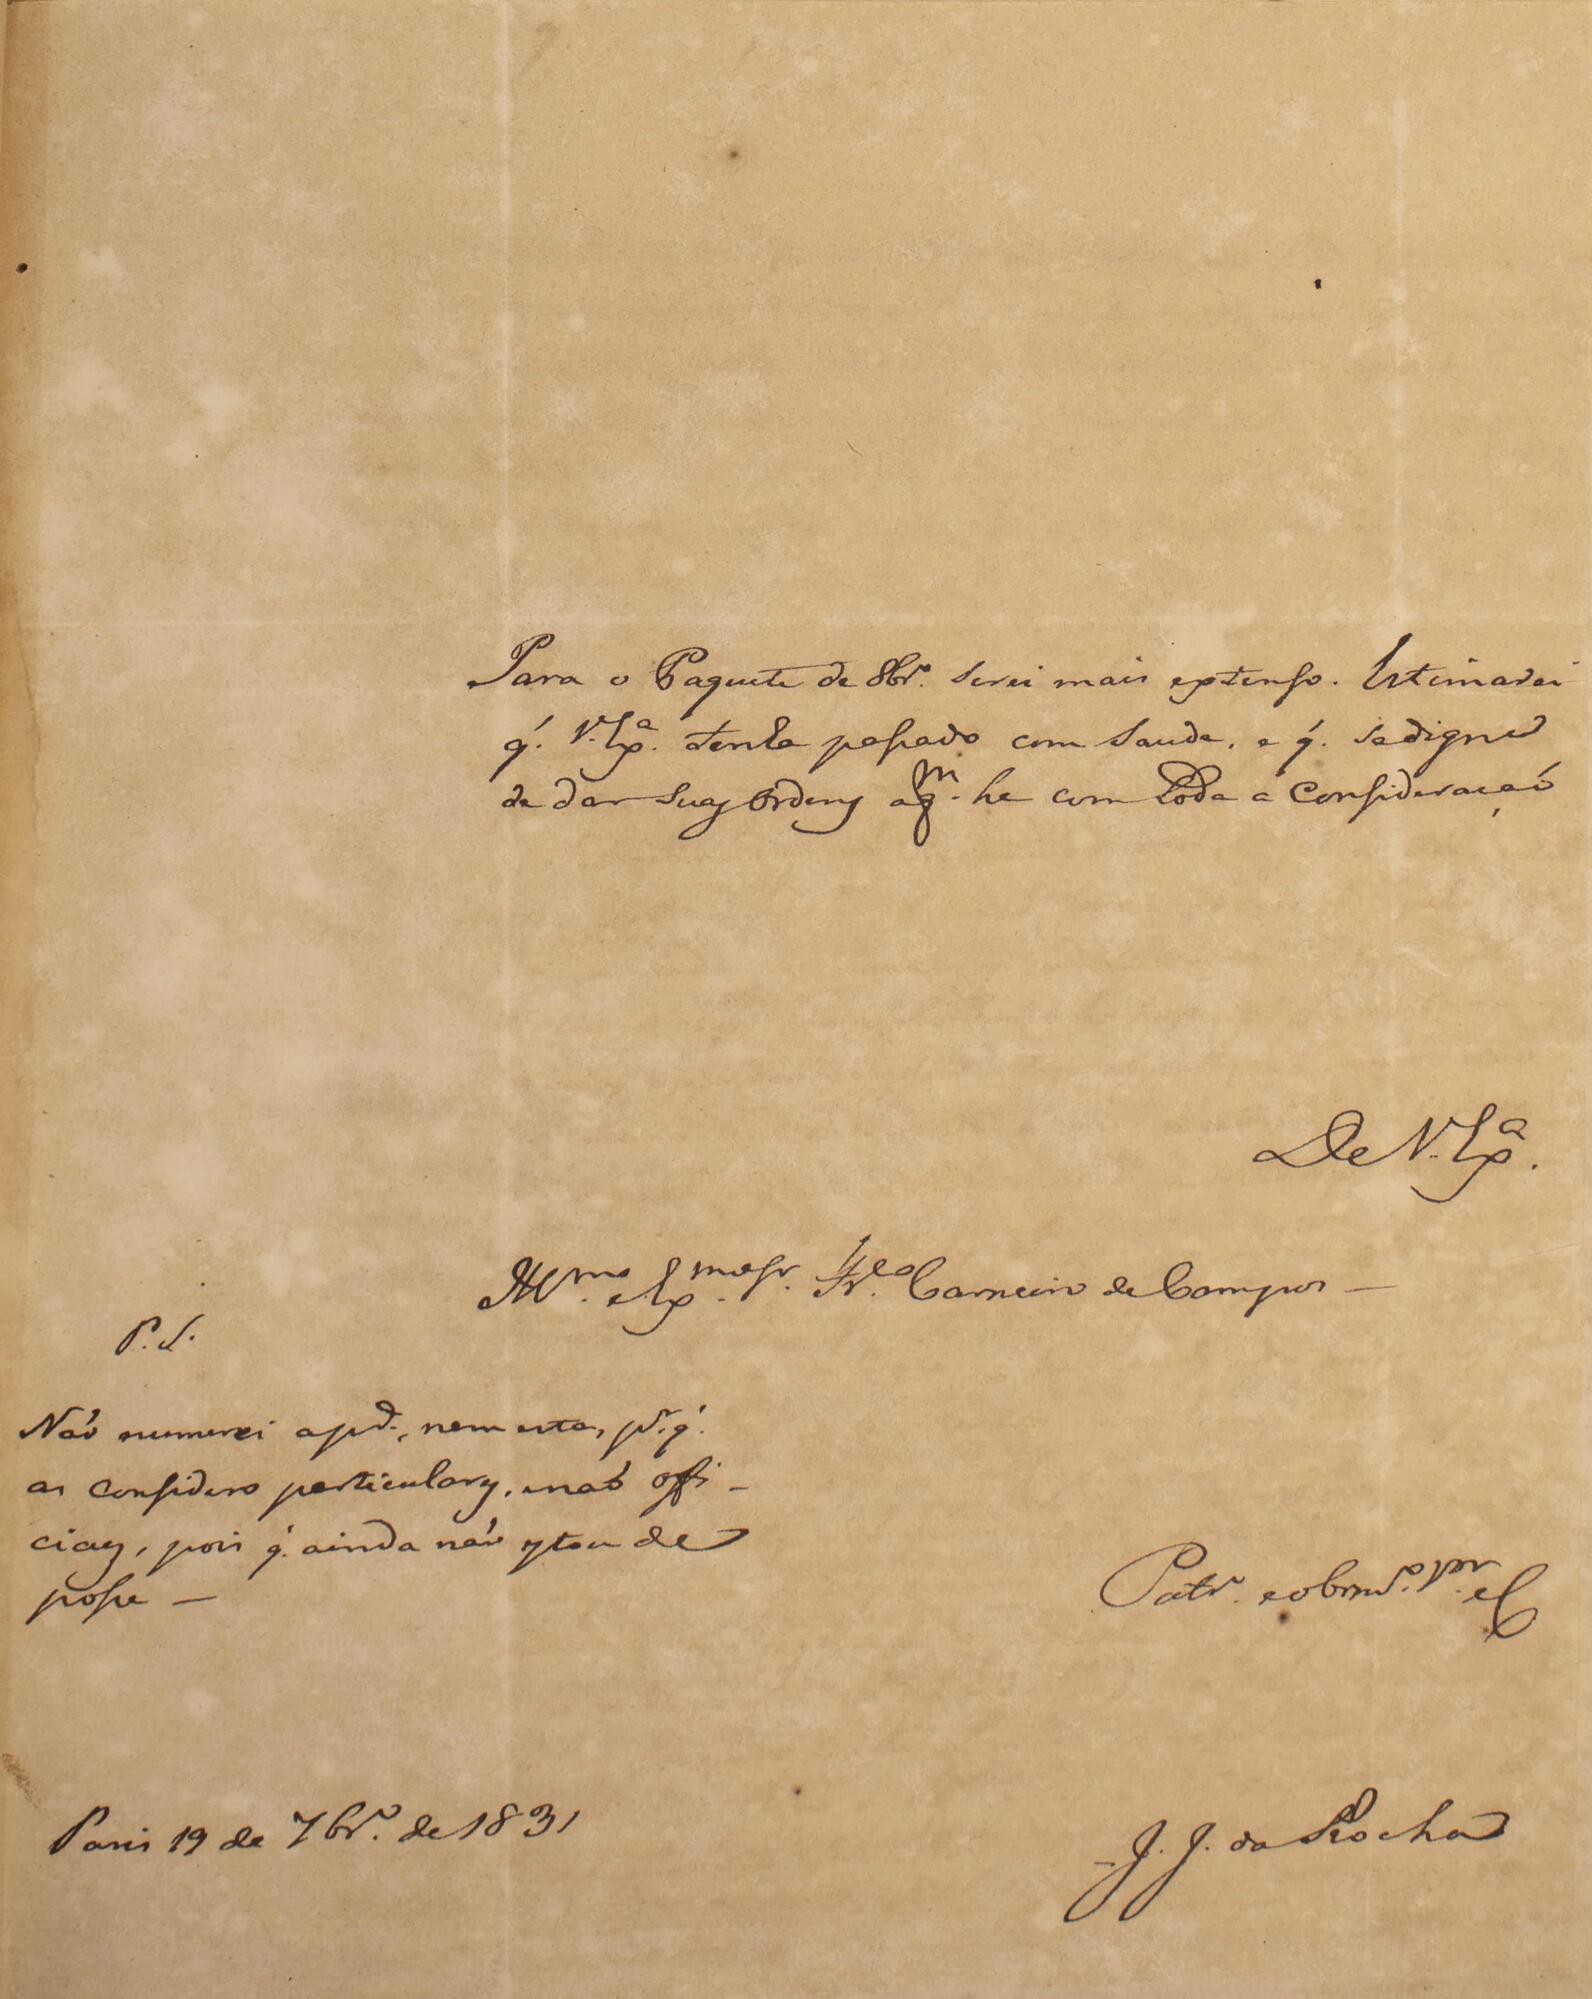 Para o Paquete de 8br.º serei mais extenso. Estimarei
q̃. V. Ex.ª tenha passado com saude, e q̃. se digne
de dar suas Ordens a q.m he com toda a Consideração
De V. Ex.ª
Ill.mo e Ex.mo Sr. Fr.co Carneiro de Campos —
P. S.
Não numerei a p.d., nem esta, p.r q̃.
as considero particulares, e não offi-
ciaes, pois q̃. ainda não estou de
posse —
Patr.º e obrm.º
Paris 19 de 7br.º de 1831
J. J. da Rocha